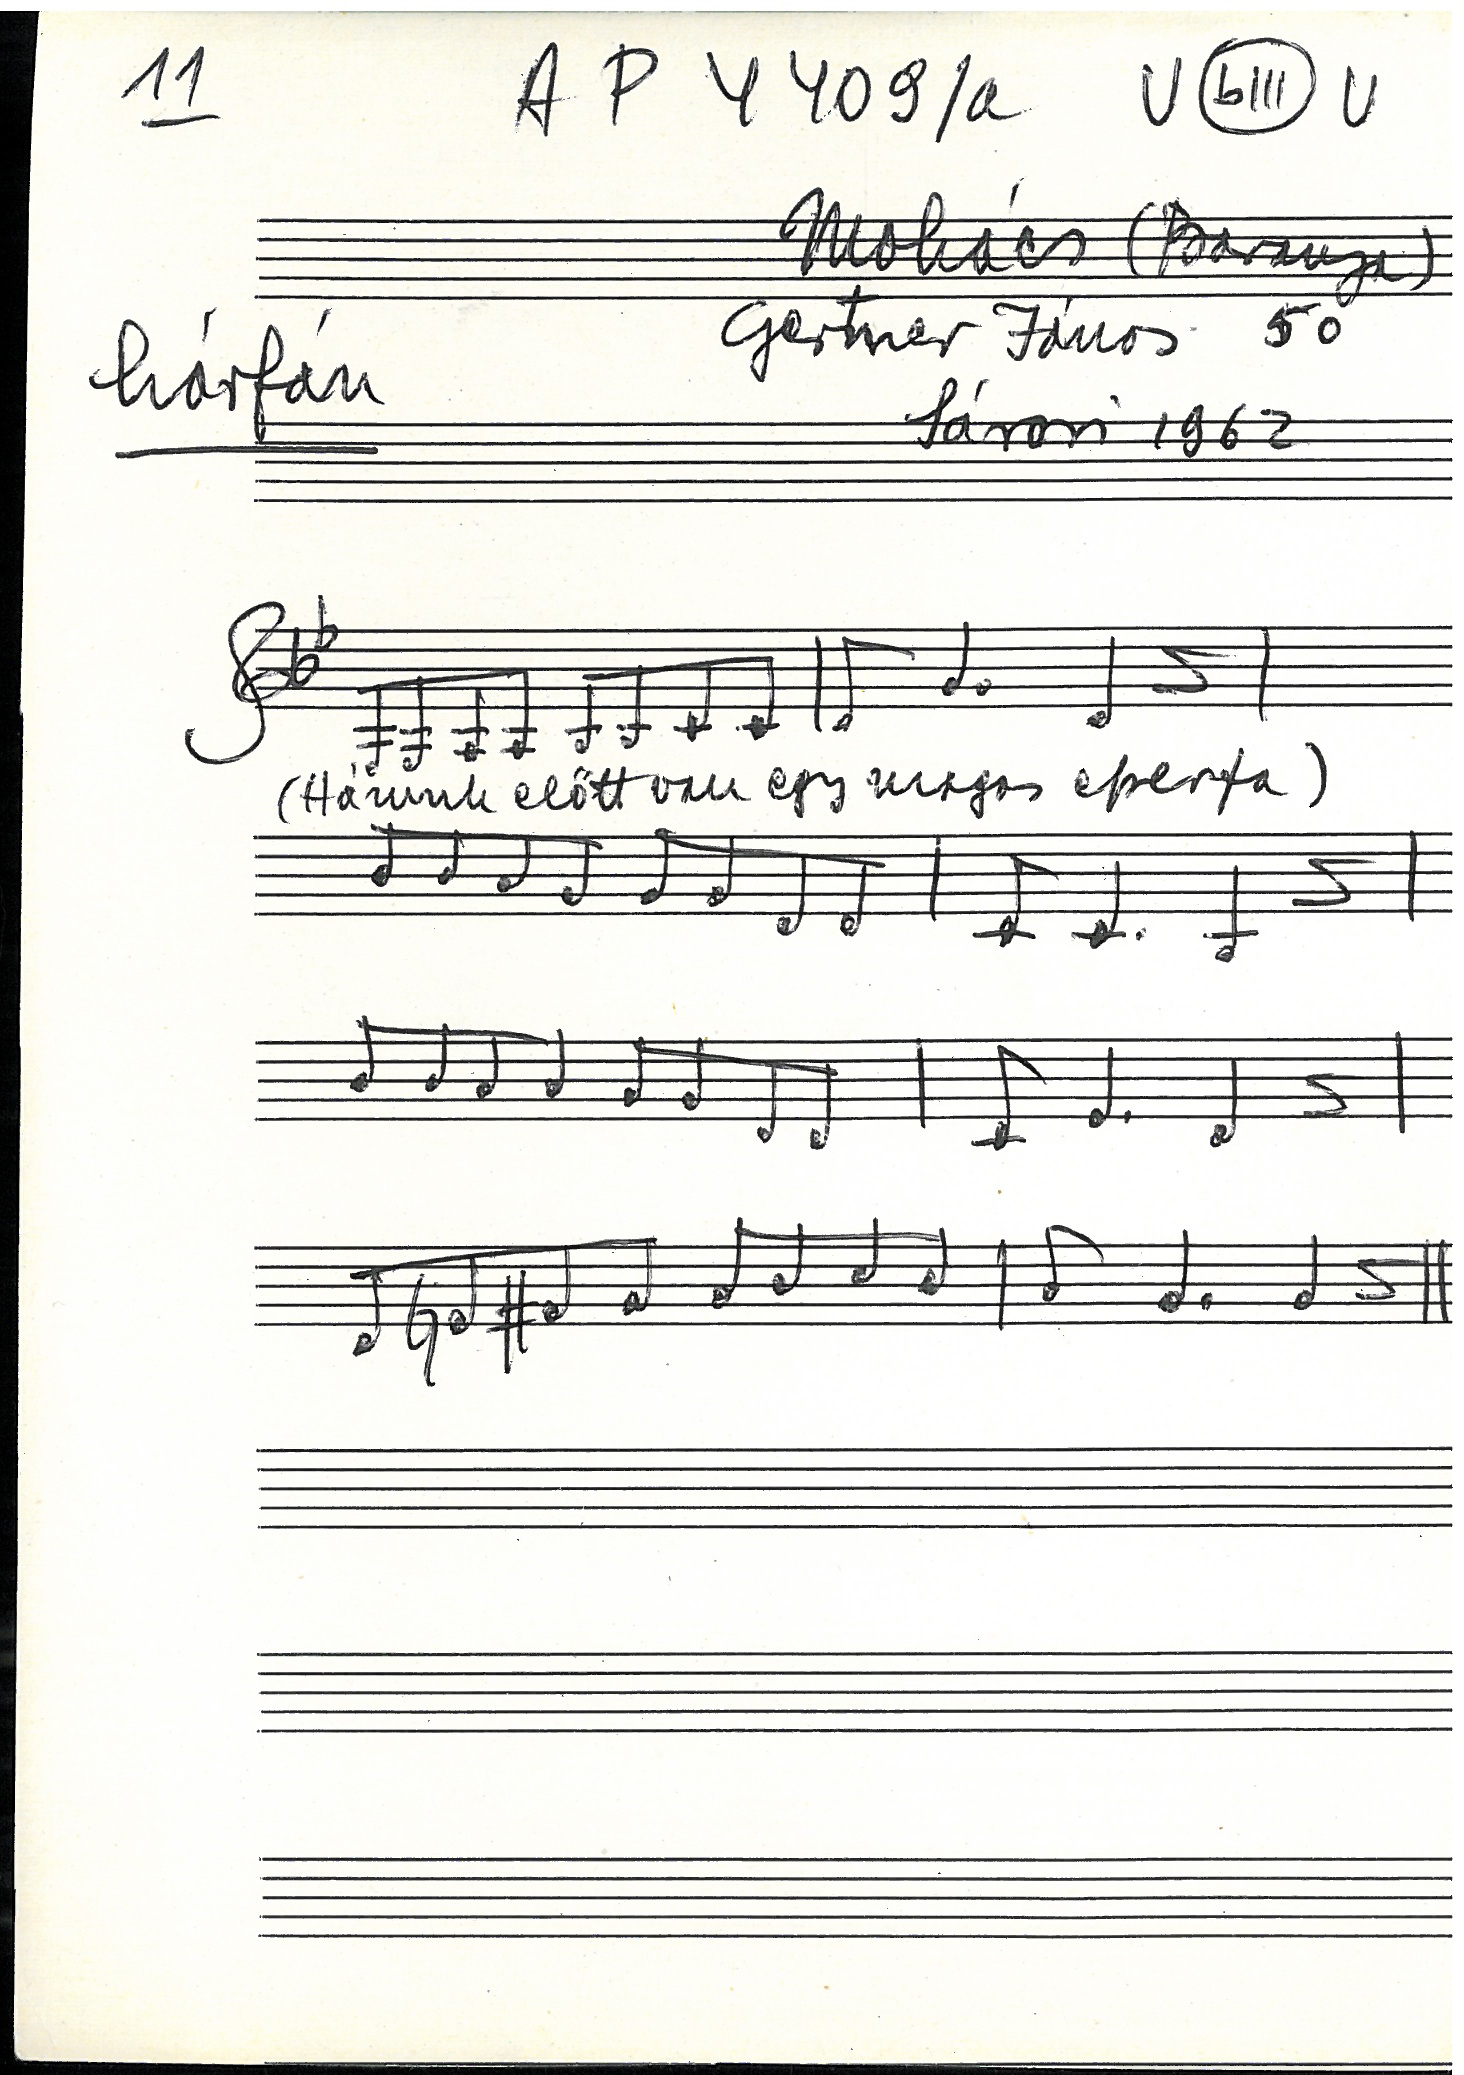 11 AP 4409/a V (bIII) V
Mohács (Baranya)
Gertner János 50
hárfán
Sárosi 1962
(Házunk előtt van egy magas eperfa)